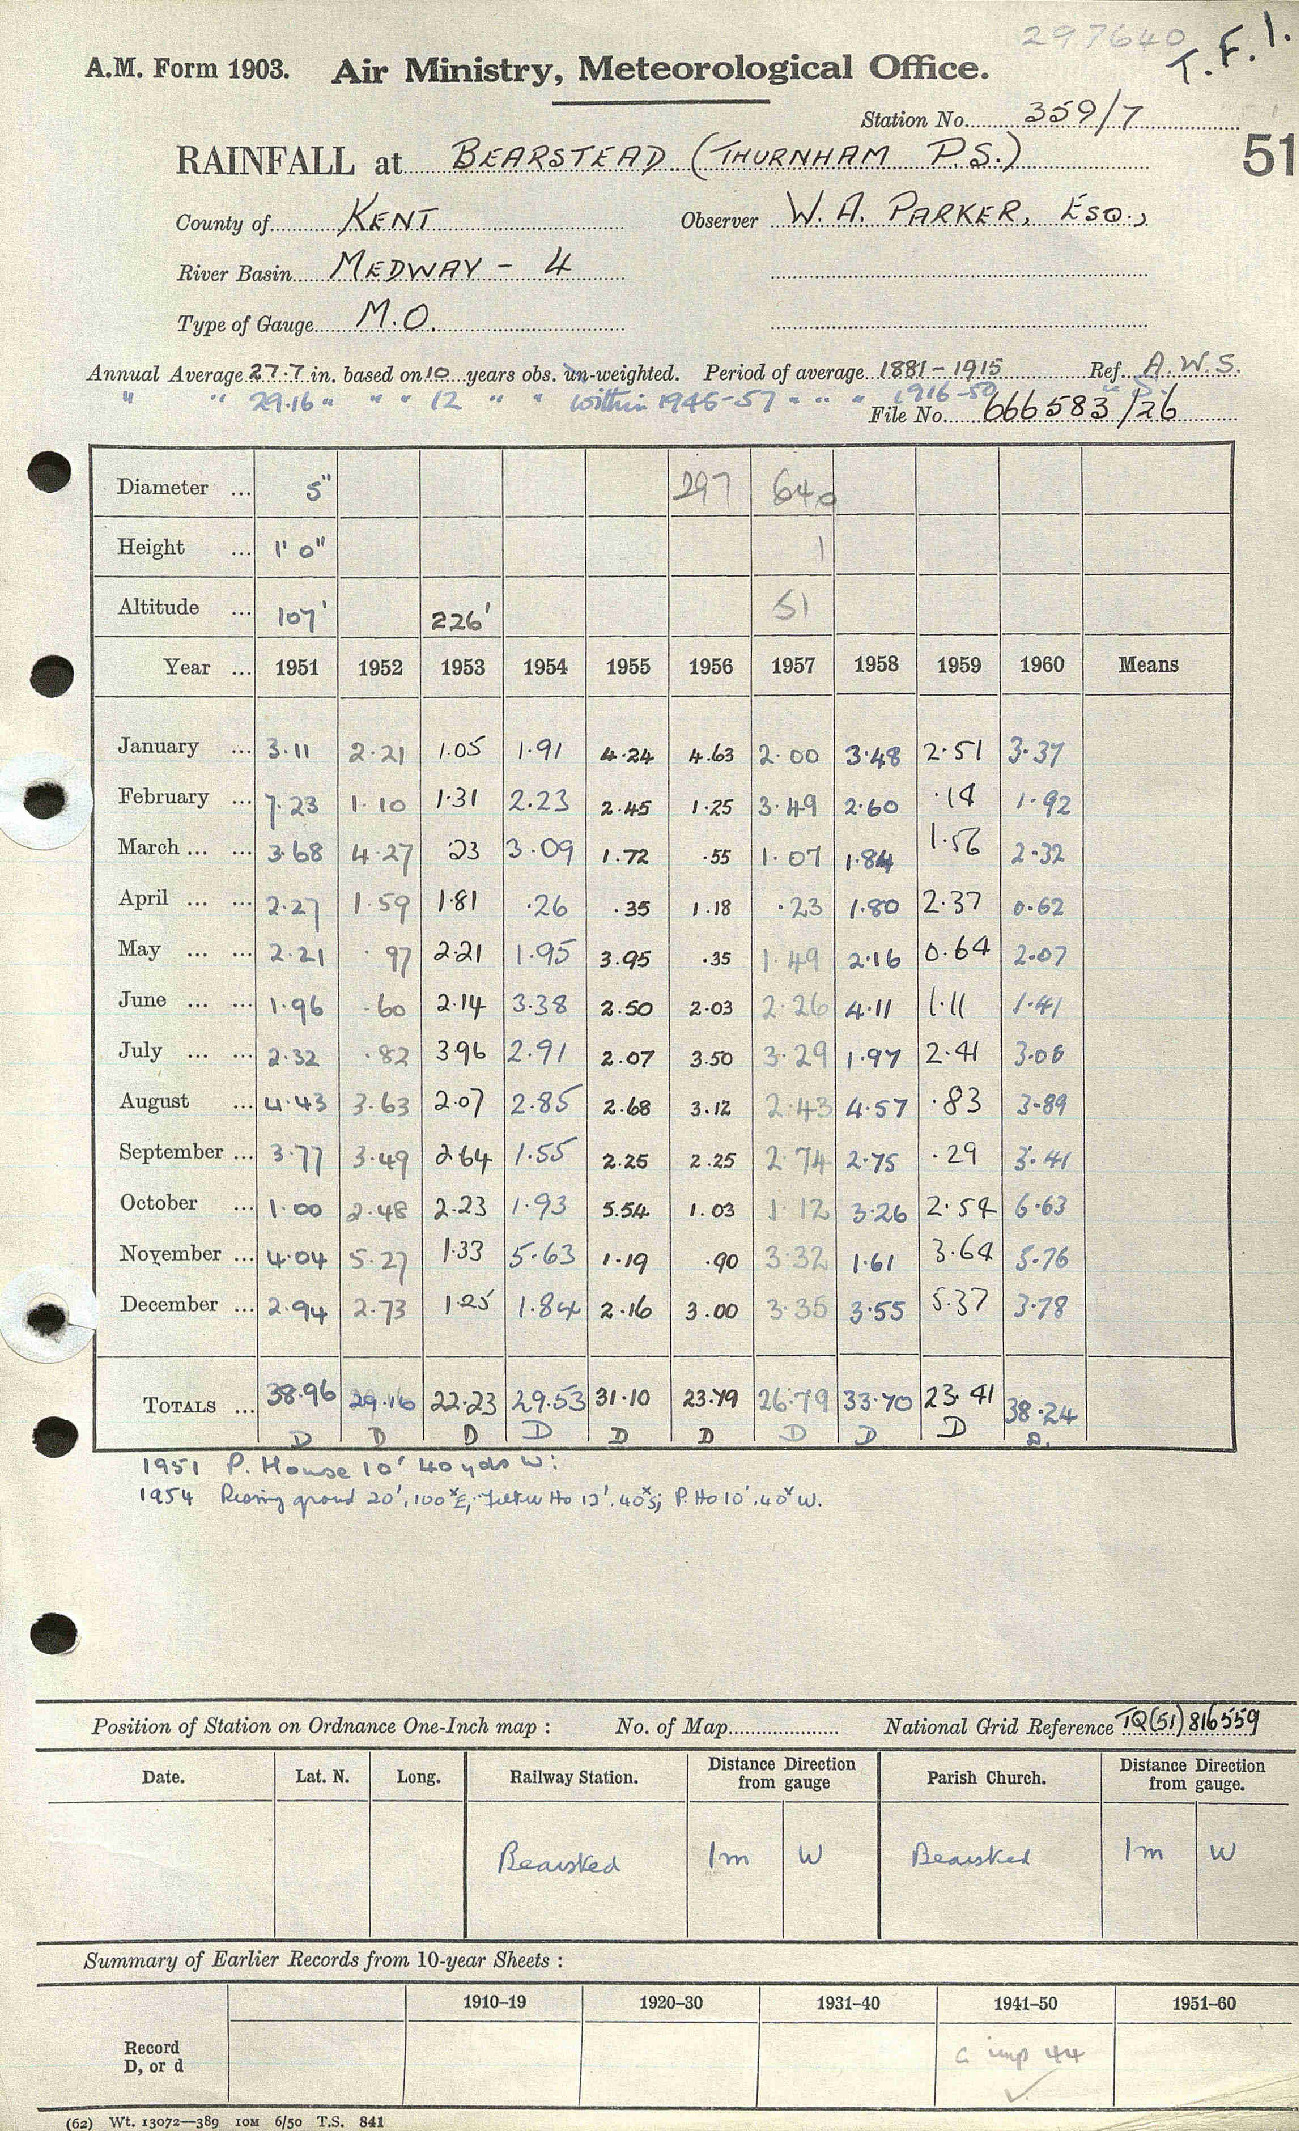 297640
T.F.1.
A.M. Form 1903. Air Ministry, Meteorological Office.
Station No. 359/7
51
RAINFALL at BEARSTEAD (THURNHAM P.S.)
County of KENT Observer W. A. PARKER, ESQ.,
River Basin MEDWAY - 4
Type of Gauge M.O.
Annual Average 27.7 in. based on 10 years obs. un-weighted. Period of average 1881-1915 Ref. A.W.S.
" " 29.16 " " " 12 " " within 1946-57 " " " 1916-50 "
File No. 666583/26
Diameter ... 5" 297 640
Height ... 1' 0" 1
Altitude ... 107' 226' 51
Year ... 1951 1952 1953 1954 1955 1956 1957 1958 1959 1960 Means
January ... 3.11 2.21 1.05 1.91 4.24 4.63 2.00 3.48 2.51 3.37
February ... 7.23 1.10 1.31 2.23 2.45 1.25 3.49 2.60 .14 1.92
March ... ... 3.68 4.27 .23 3.09 1.72 .55 1.07 1.84 1.56 2.32
April ... ... 2.27 1.59 1.81 .26 .35 1.18 .23 1.80 2.37 0.62
May ... ... 2.21 .97 2.21 1.95 3.95 .35 1.49 2.16 0.64 2.07
June ... ... 1.96 .60 2.14 3.38 2.50 2.03 2.26 4.11 1.11 1.41
July ... ... 2.32 .82 3.96 2.91 2.07 3.50 3.29 1.97 2.41 3.06
August ... 4.43 3.63 2.07 2.85 2.68 3.12 2.43 4.57 .83 3.89
September ... 3.77 3.49 2.64 1.55 2.25 2.25 2.74 2.75 .29 3.41
October ... 1.00 2.48 2.23 1.93 5.54 1.03 1.12 3.26 2.54 6.63
November ... 4.04 5.27 1.33 5.63 1.19 .90 3.32 1.61 3.64 5.76
December ... 2.94 2.73 1.25 1.84 2.16 3.00 3.35 3.55 5.37 3.78
TOTALS ... 38.96 29.16 22.23 29.53 31.10 23.79 26.79 33.70 23.41 38.24
D D D D D D D D D D.
1951 P. House 10' 40 yds W:
1954 Rising ground 20', 100ˣE; Filter Ho 12'. 40ˣS; P. Ho 10'. 40ˣ W.
Position of Station on Ordnance One-Inch map : No. of Map National Grid Reference TQ(51)816559
Date. Lat. N. Long. Railway Station. Distance from gauge Direction Parish Church. Distance from gauge. Direction
Bearsted 1m W Bearsted 1m W
Summary of Earlier Records from 10-year Sheets :
1910–19 1920–30 1931–40 1941–50 1951–60
Record
D, or d
imp 44 ✓
(62) Wt. 13072—389 10M 6/50 T.S. 841